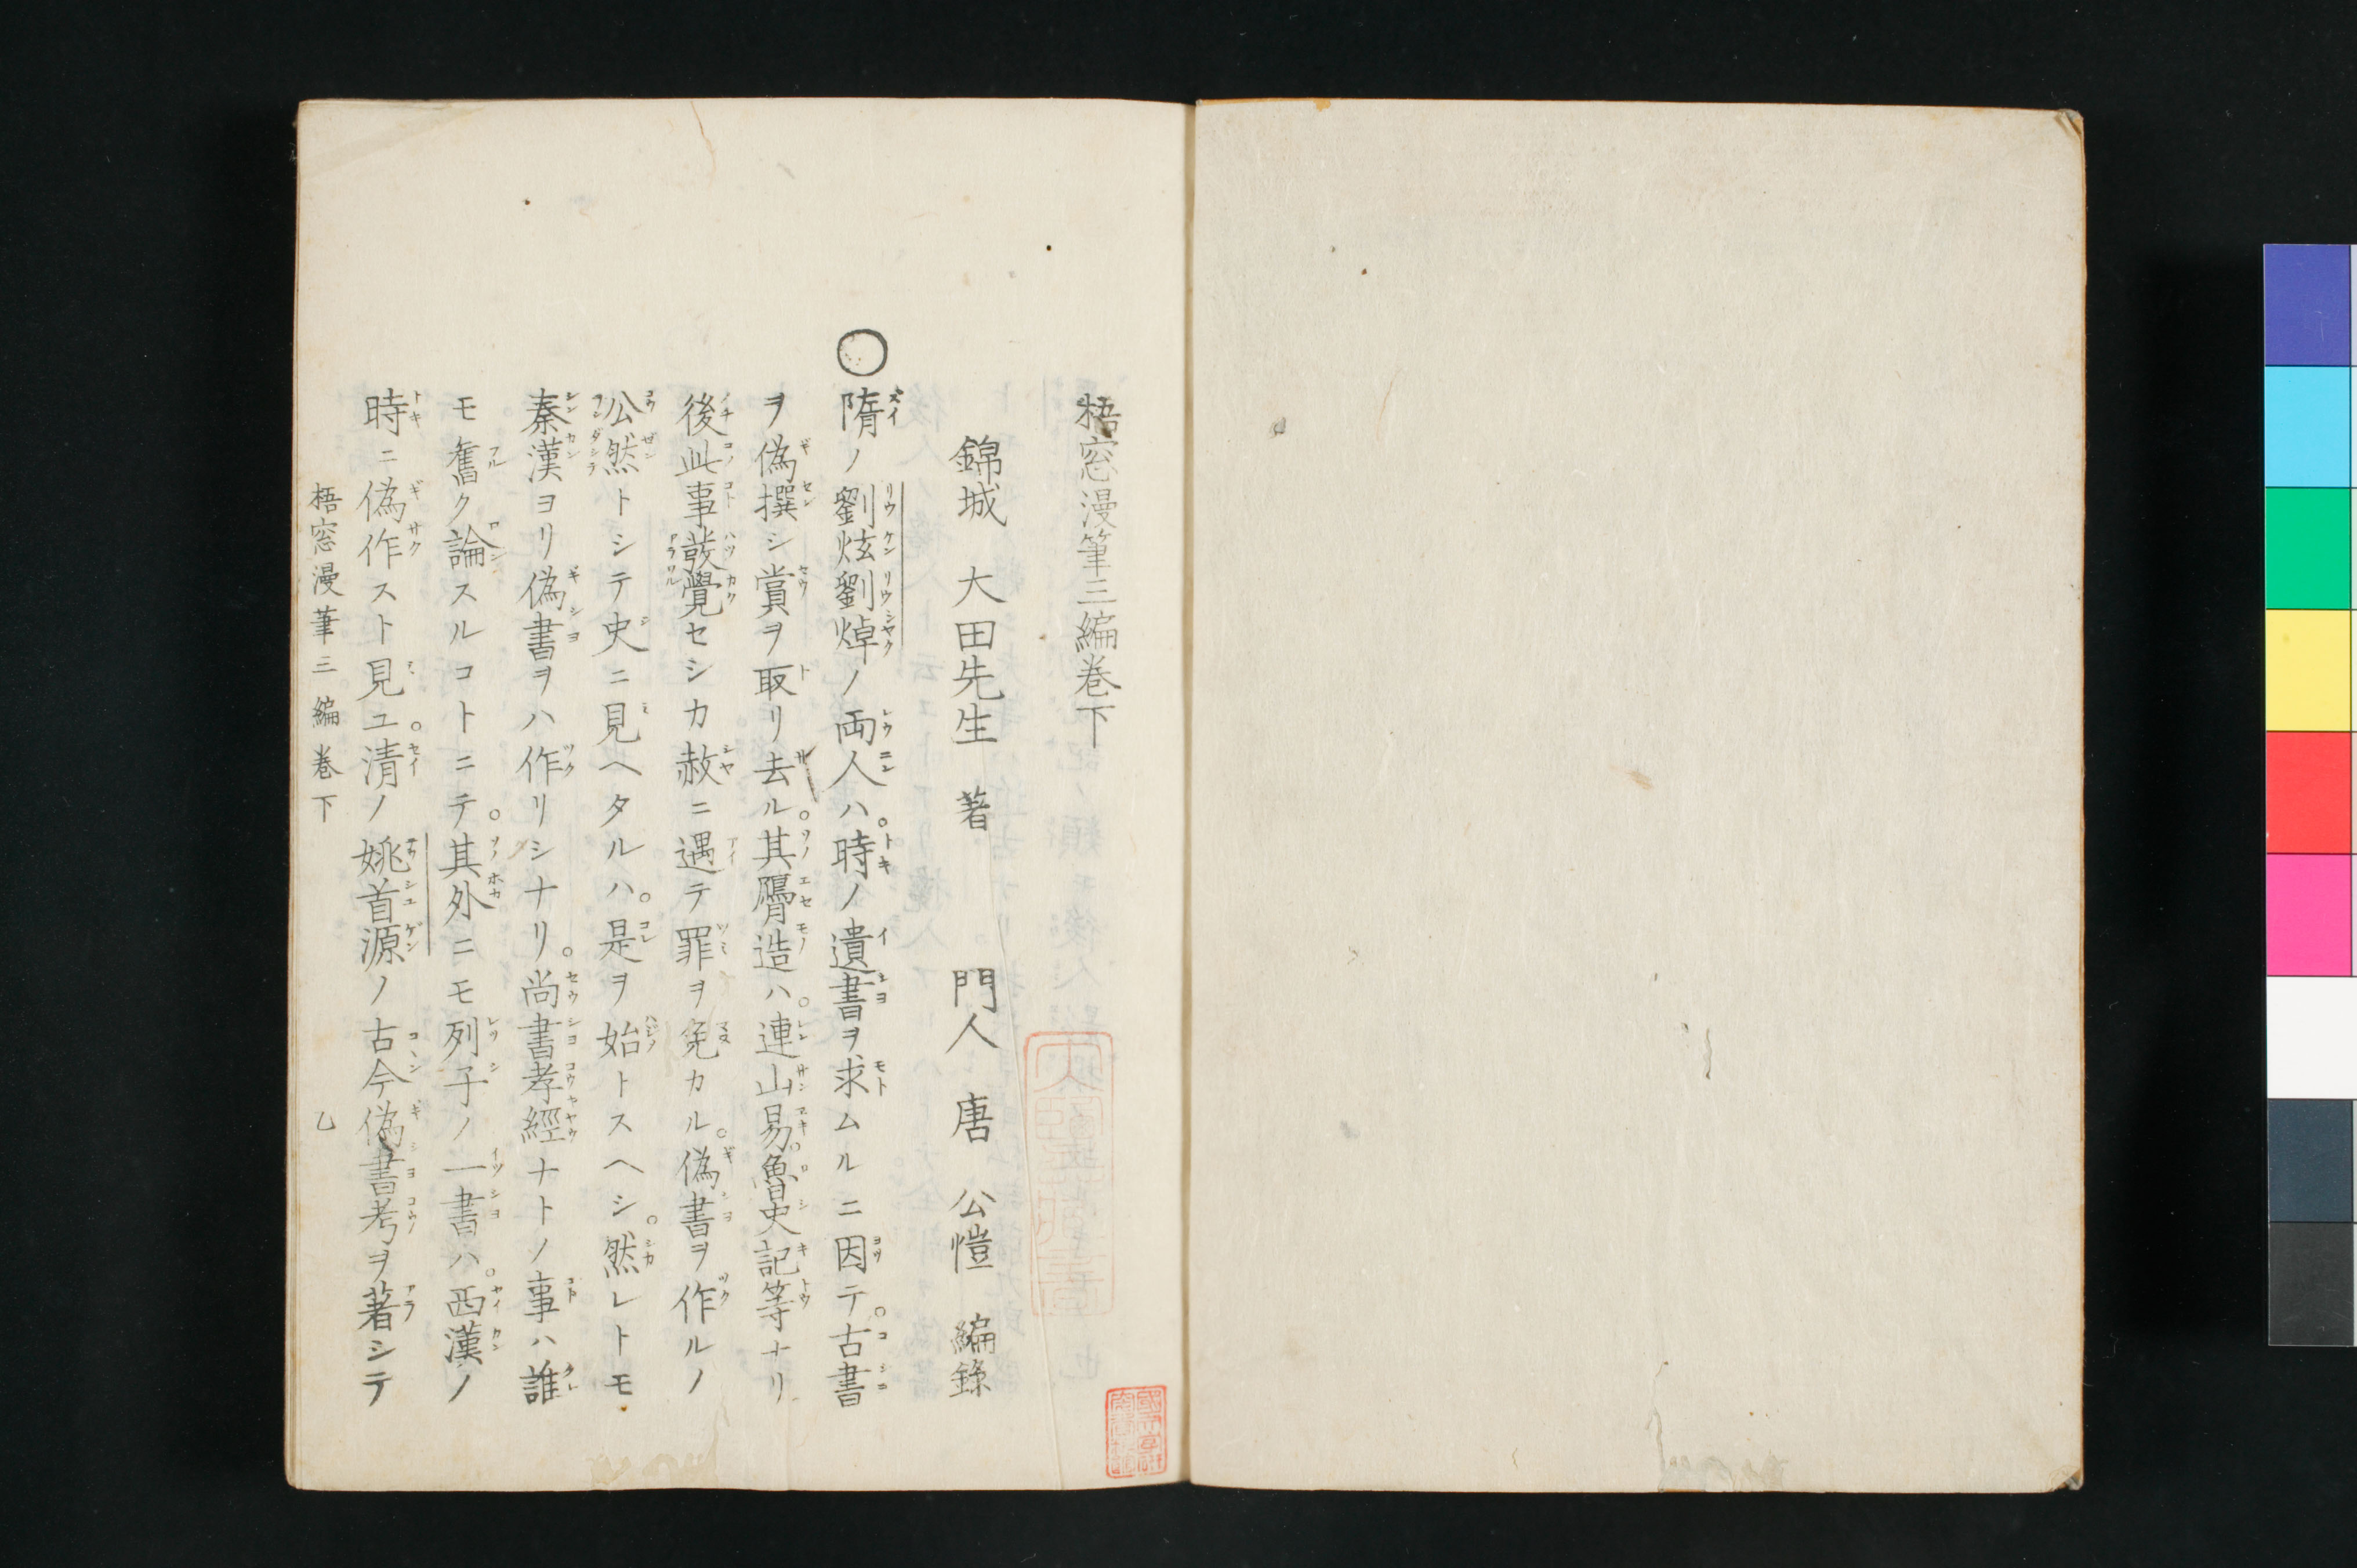 梧窓漫筆三編巻下
錦城 大田先生 著 門人 唐 公愷 編錄
○隋ノ劉炫劉焯ノ両人ハ。時ノ遺書ヲ求ムルニ因テ。古書
ヲ偽撰シ賞ヲ取リ去ル。其贋造ハ。連山易。魯史記等ナリ
後此事発覺セシカ赦ニ遇テ罪ヲ免カル。偽書ヲ作ルノ
公然トシテ史ニ見ヘタルハ。是ヲ始トスヘシ。然レトモ
秦漢ヨリ偽書ヲハ作リシナリ。尚書孝經ナトノ事ハ誰
モ奮ク論スルコトニテ。其外ニモ列子ノ一書ハ。西漢ノ
時ニ偽作スト見ユ。清ノ姚首源ノ古今偽書考ヲ著シテ
梧窓漫筆三編巻下 乙